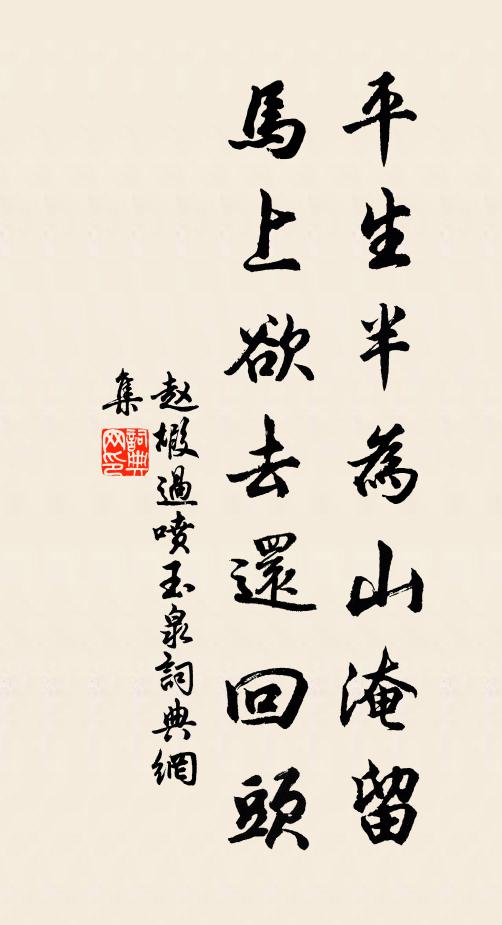 平生半為山淹留
馬上欲去還回頭
赵嘏過噴玉泉詞典網
集
詞典网印